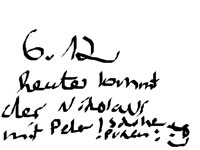 6.12
Heute kommt
der Nikolaus
mit Peter!